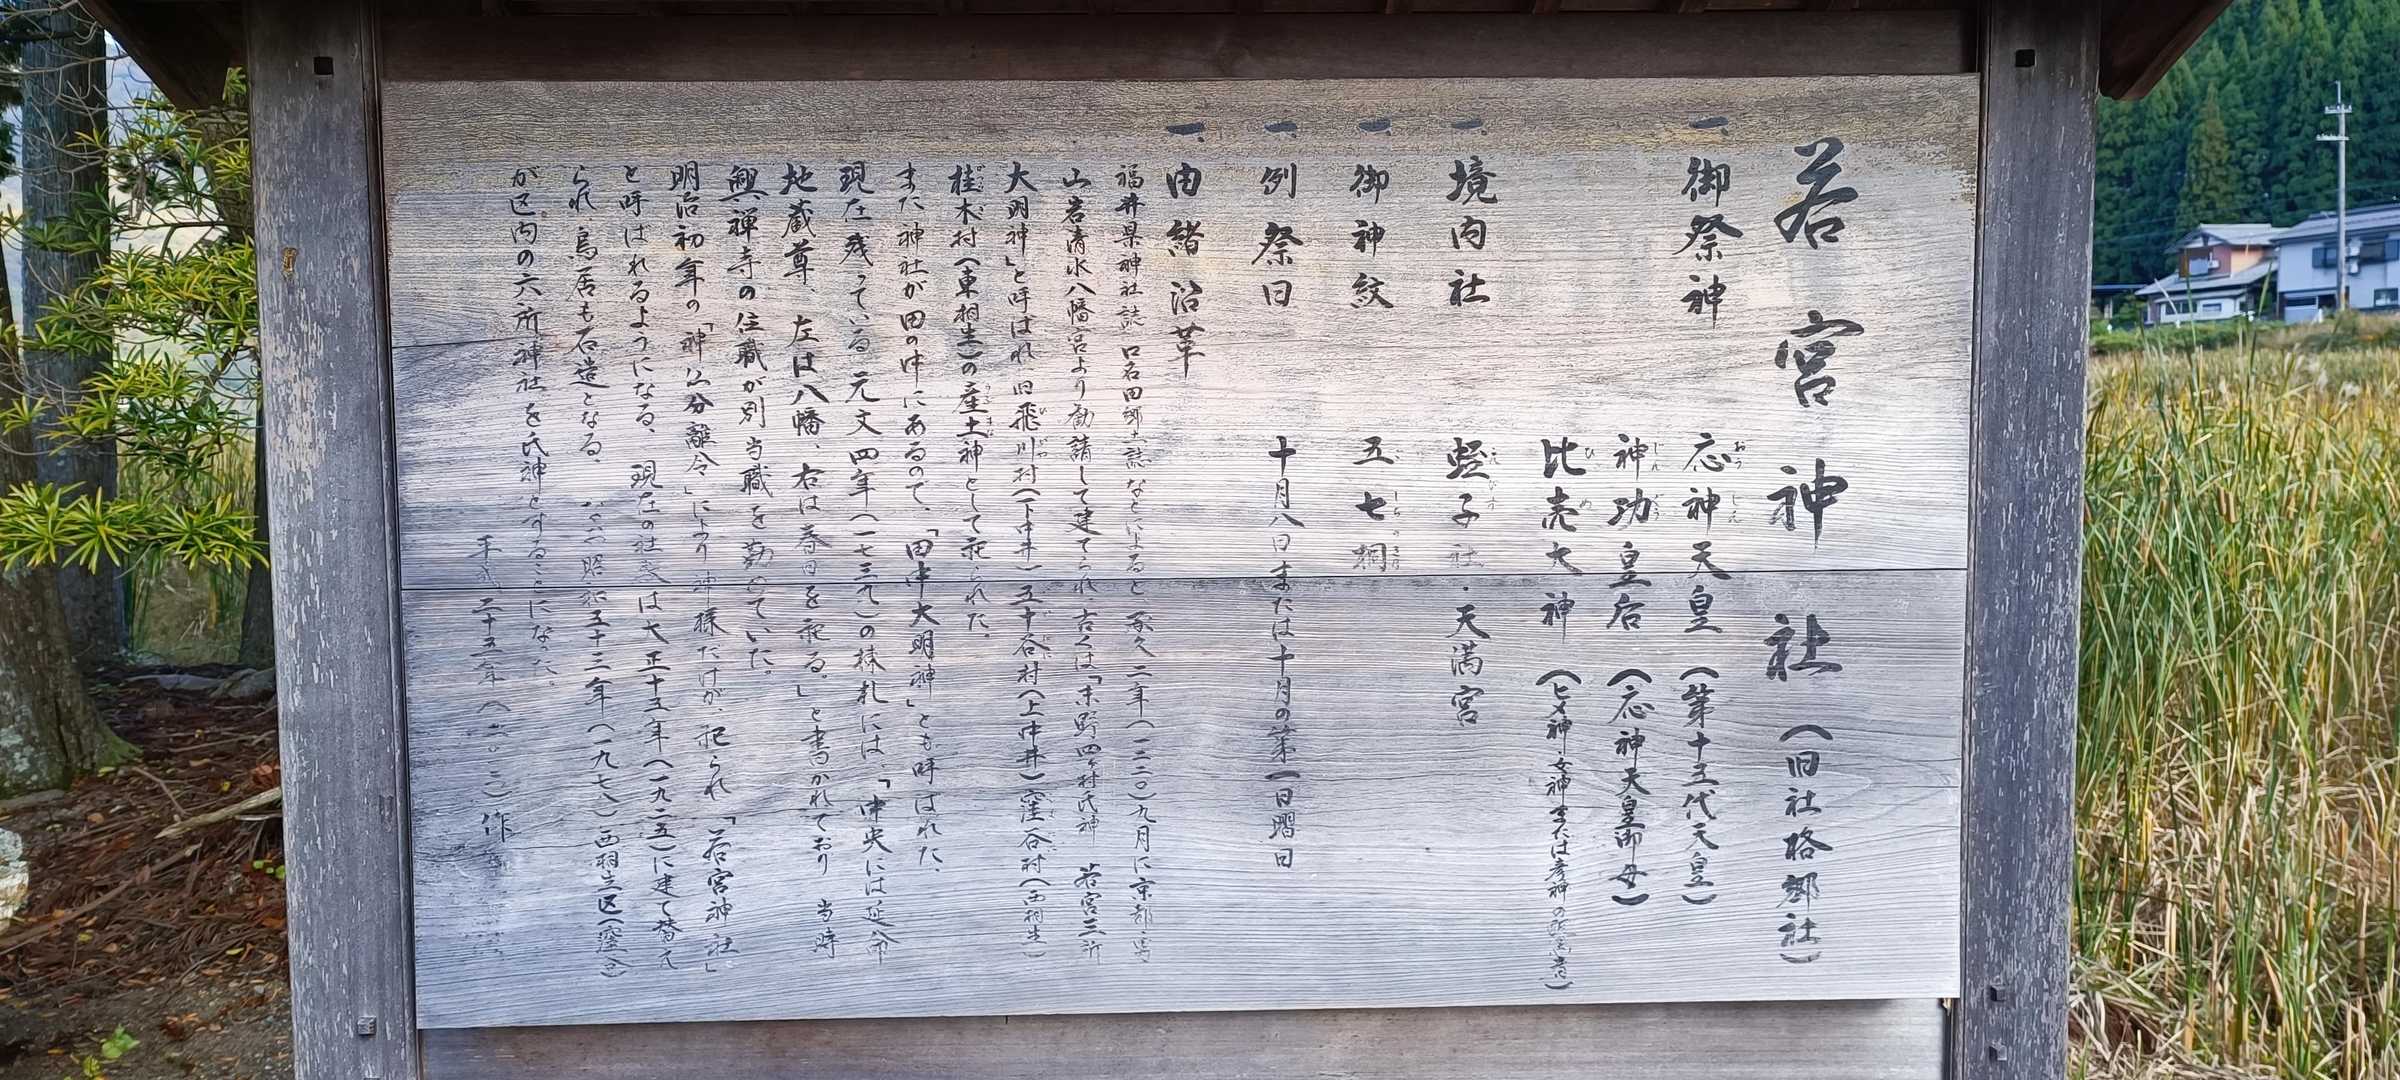 若宮神社（旧社格郷社）
一、御祭神 応神天皇（第十五代天皇）
神功皇后（応神天皇御母）
比売大神（ヒメ神 女神または彦神の
一、境内社 蛭子社・天満宮
一、御神紋 五七桐
一、例祭日 十月八日または十月の第一日曜日
一、由緒沿革
福井県神社誌 口名田郷土誌などによると 承久二年（一二二〇）九月に京都・男
山岩清水八幡宮より勧請して建てられ、古くは「末野四ヶ村氏神 若宮三所
大明神」と呼ばれ、旧飛川村（下中井）五十谷村（上中井）窪谷村（西相生）
桂木村（東相生）の産土神として祀られた。
また神社が田の中にあるので、「田中大明神」とも呼ばれた。
現在残っている元文四年（一七三九）の棟札には、「中央には延命
地蔵尊、左は八幡、右は春日を祀る。」と書かれており 当時
興禅寺の住職が別当職を勤めていた。
明治初年の「神仏分離令」により神様だけが、祀られ「若宮神社」
と呼ばれるようになる、 現在の社殿は大正十五年（一九二五）に建て替え
られ、鳥居も石造となる、 なお昭和五十三年（一九七八）西相生区（窪谷）
が区内の六所神社を氏神とすることになった。
平成二十五年（二〇一三）作